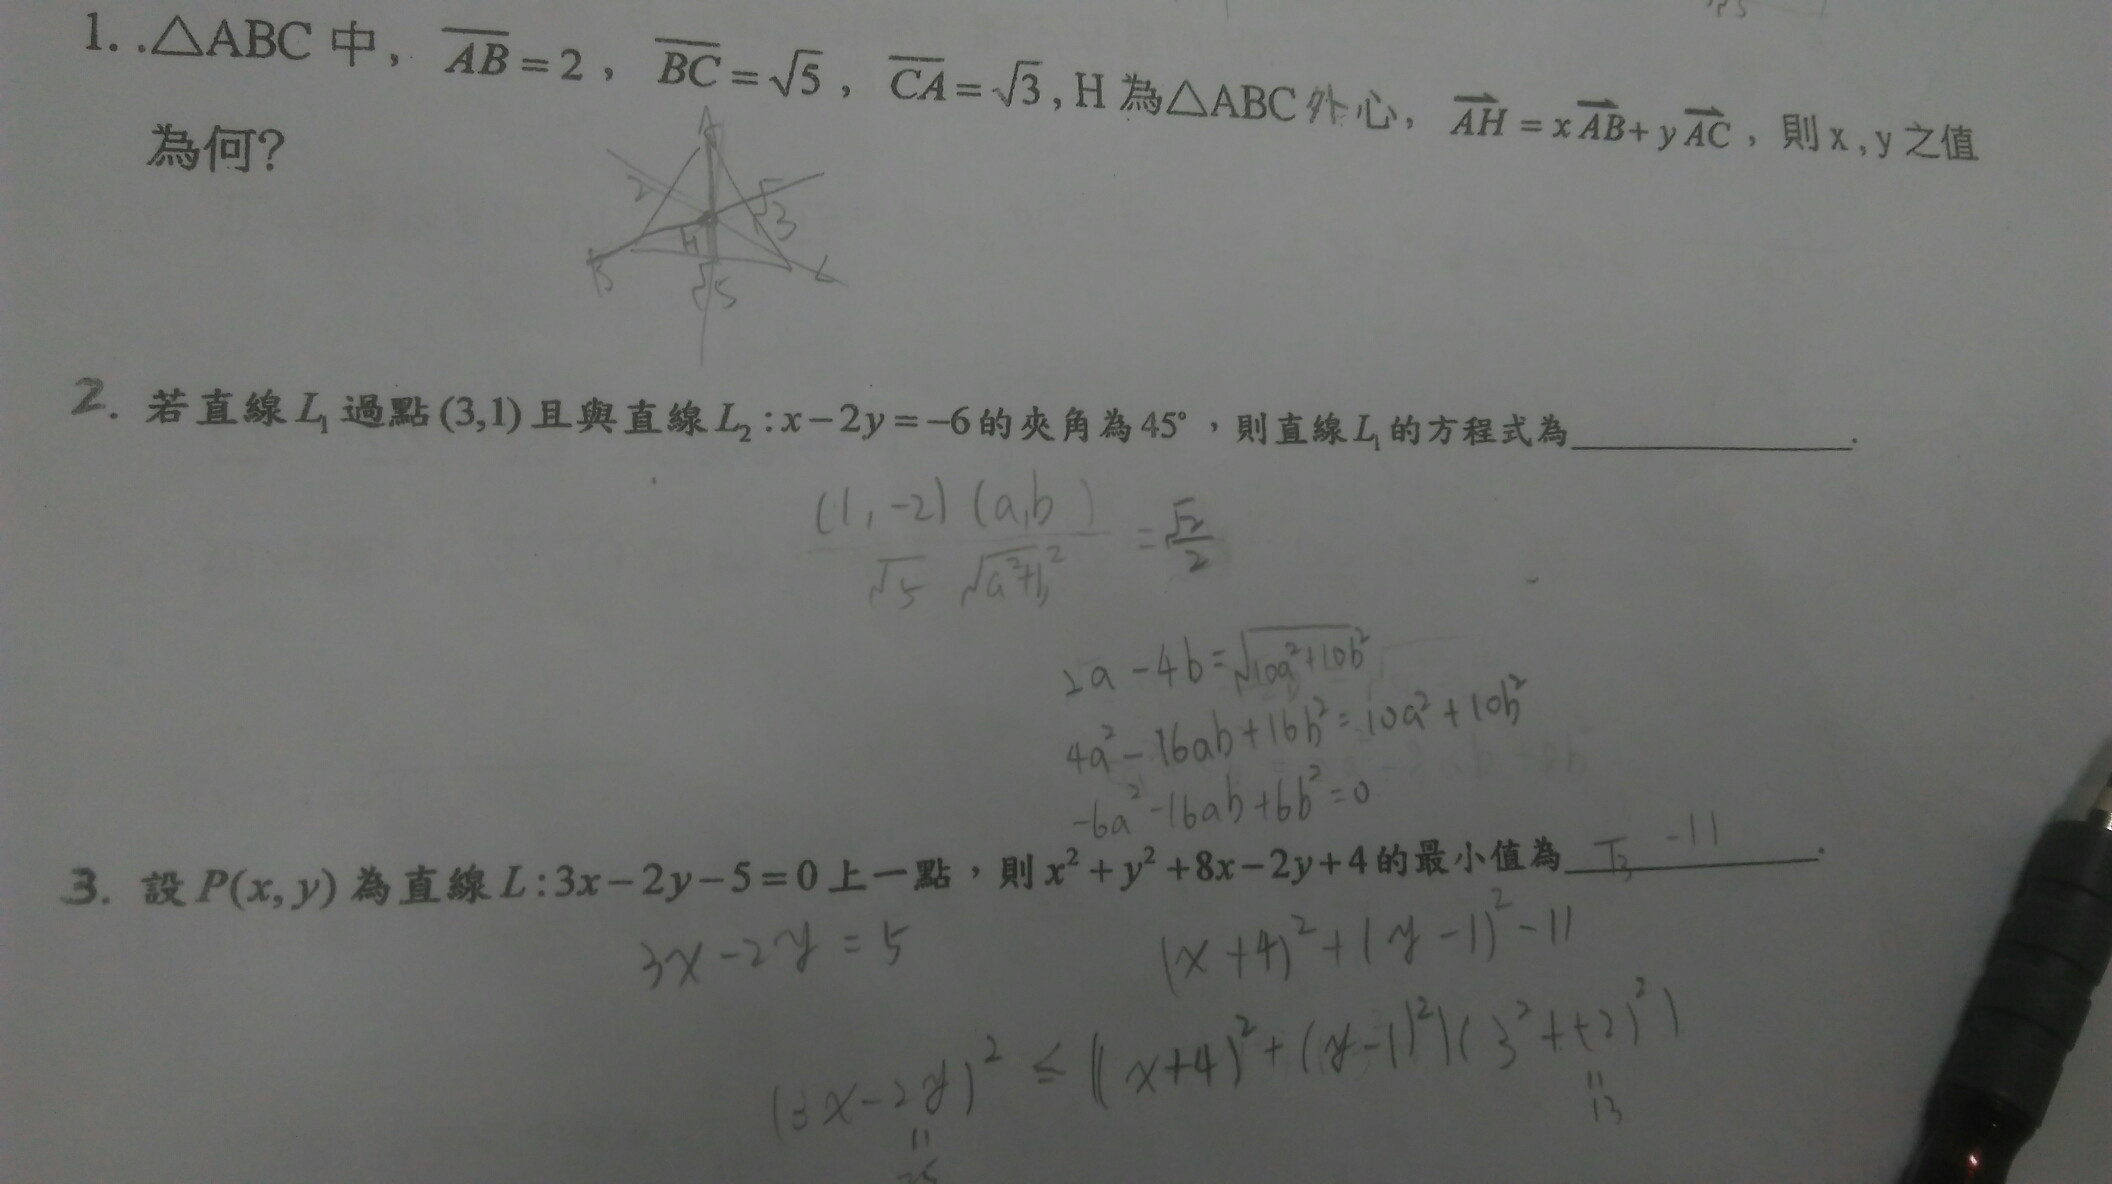 1. .△ABC 中, AB = 2 , BC = √5 , CA = √3 , H 為△ABC 外心, AH = x AB + y AC , 則 x , y 之值
為何?
A
2
√3
H
B
√5
C
2. 若直線 L₁ 過點 (3,1) 且與直線 L₂ : x − 2y = −6 的夾角為 45° ,則直線 L₁ 的方程式為__________.
(1, -2) (a,b) / √5 √a²+b² = √2/2
2a - 4b = √10a²+10b²
4a² - 16ab + 16b² = 10a² + 10b²
-6a² - 16ab + 6b² = 0
3. 設 P(x, y) 為直線 L : 3x − 2y − 5 = 0 上一點,則 x² + y² + 8x − 2y + 4 的最小值為 -11 .
3x - 2y = 5
(x+4)² + (y-1)² - 11
(3x - 2y)² ≤ ((x+4)² + (y-1)²)(3² + (-2)²)
13
25